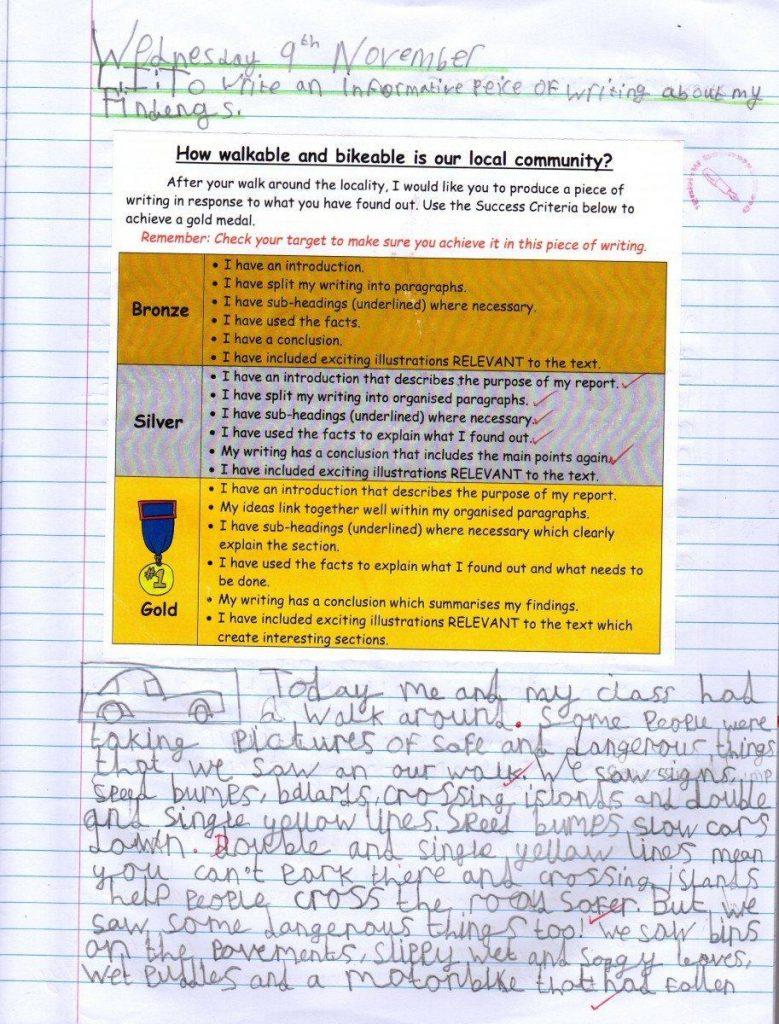 Wednesday 9th November
L.I: To write an informative peice of writing about my
Findengs.
How walkable and bikeable is our local community?
After your walk around the locality, I would like you to produce a piece of
writing in response to what you have found out. Use the Success Criteria below to
achieve a gold medal.
Remember: Check your target to make sure you achieve it in this piece of writing.
Bronze
• I have an introduction.
• I have split my writing into paragraphs.
• I have sub-headings (underlined) where necessary.
• I have used the facts.
• I have a conclusion.
• I have included exciting illustrations RELEVANT to the text.
Silver
• I have an introduction that describes the purpose of my report.
• I have split my writing into organised paragraphs.
• I have sub-headings (underlined) where necessary.
• I have used the facts to explain what I found out.
• My writing has a conclusion that includes the main points again.
• I have included exciting illustrations RELEVANT to the text.
#1
Gold
• I have an introduction that describes the purpose of my report.
• My ideas link together well within my organised paragraphs.
• I have sub-headings (underlined) where necessary which clearly
explain the section.
• I have used the facts to explain what I found out and what needs to
be done.
• My writing has a conclusion which summarises my findings.
• I have included exciting illustrations RELEVANT to the text which
create interesting sections.
Today me and my class had
a walk around. Some people were
taking pictures of safe and dangerous things
that we saw on our walk. We saw signs,
speed bumps, bollards, crossing islands and double
and single yellow lines. Speed bumps slow cars
down. Double and single yellow lines mean
you can't park there and crossing islands
help people cross the road safer. But we
saw some dangerous things too! We saw bins
on the pavements, slippy wet and soggy leaves,
wet puddles and a motorbike that had fallen